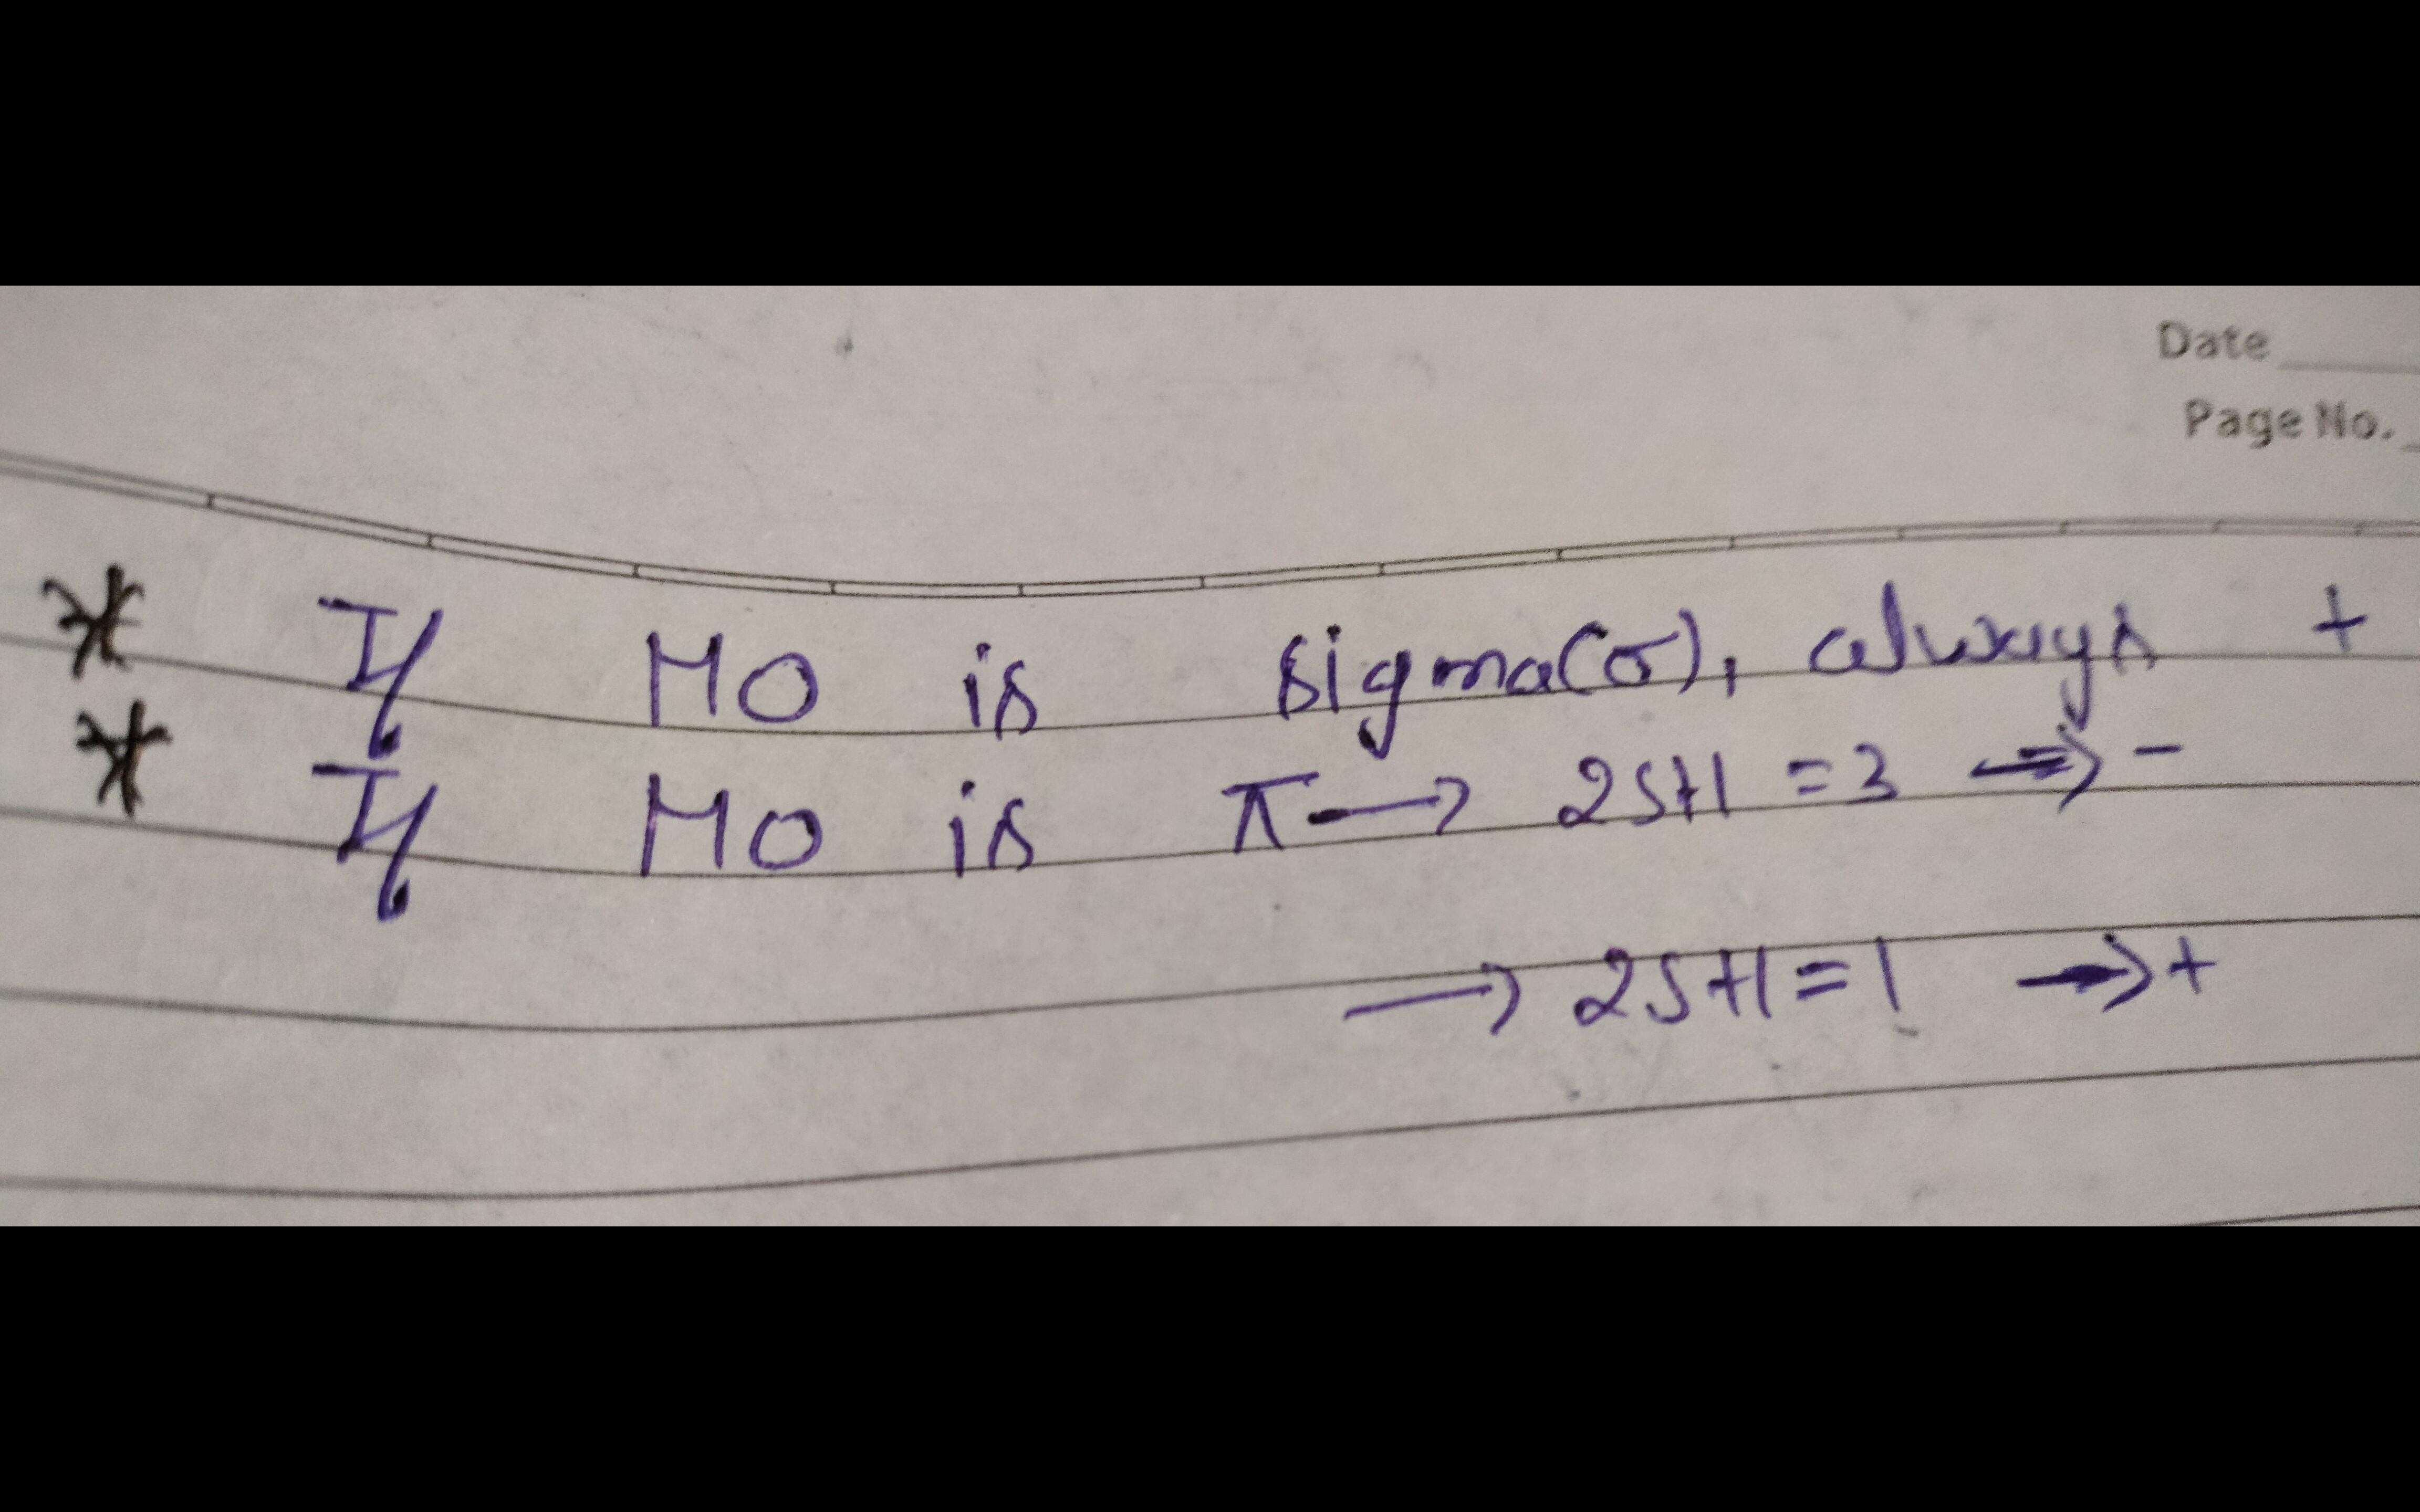 Date
Page No.
* If MO is sigma(σ), always +
* If MO is π → 2S+1 = 3 ⇒ -
→ 2S+1 = 1 → +